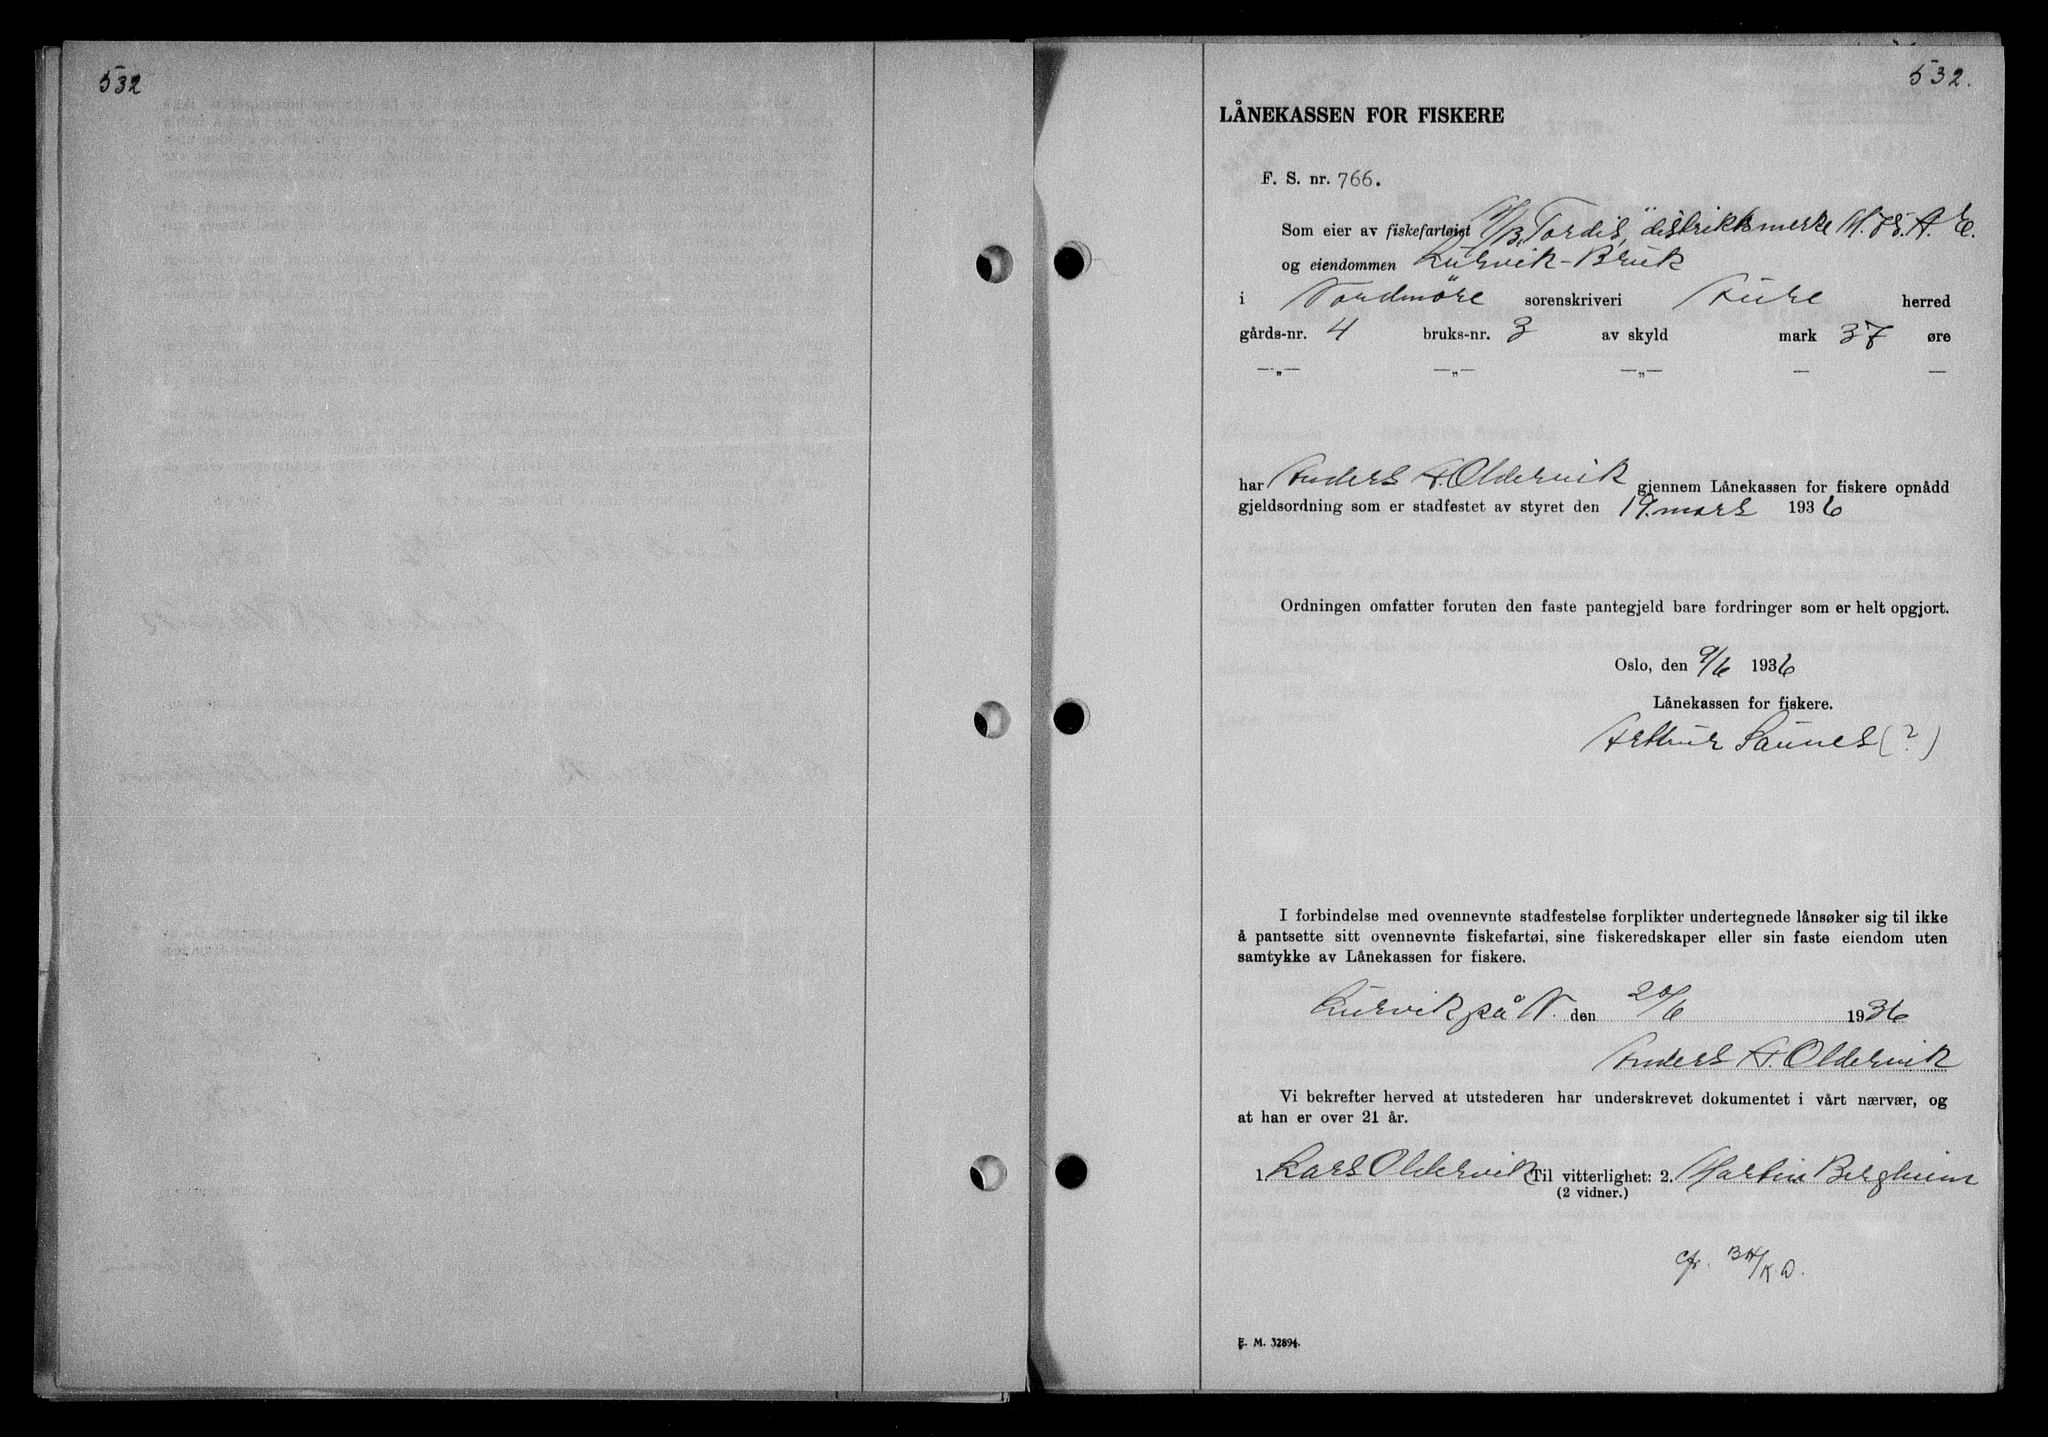 532
532.
LÅNEKASSEN FOR FISKERE
F. S. nr. 766.
Som eier av fiskefartøiet M/B „Tordis" distriktsmerke M. 75. A. E.
og eiendommen Lurvik-Bruk
i Nordmöre sorenskriveri Aure herred
gårds-nr. 4 bruks-nr. 3 av skyld mark 37 øre
—„— —„— —„— — —
har Anders A. Oldervik gjennem Lånekassen for fiskere opnådd
gjeldsordning som er stadfestet av styret den 19. mars 1936
Ordningen omfatter foruten den faste pantegjeld bare fordringer som er helt opgjort.
Oslo, den 9/6 1936
Lånekassen for fiskere.
Arthur Saunes (?)
I forbindelse med ovennevnte stadfestelse forplikter undertegnede lånsøker sig til ikke
å pantsette sitt ovennevnte fiskefartøi, sine fiskeredskaper eller sin faste eiendom uten
samtykke av Lånekassen for fiskere.
Lurvik på N. den 20/6 1936
Anders A. Oldervik
Vi bekrefter herved at utstederen har underskrevet dokumentet i vårt nærvær, og
at han er over 21 år.
1. Lars Oldervik Til vitterlighet: 2. Martin Bergheim
(2 vidner.)
cfr. BH/KO.
E. M. 32894.